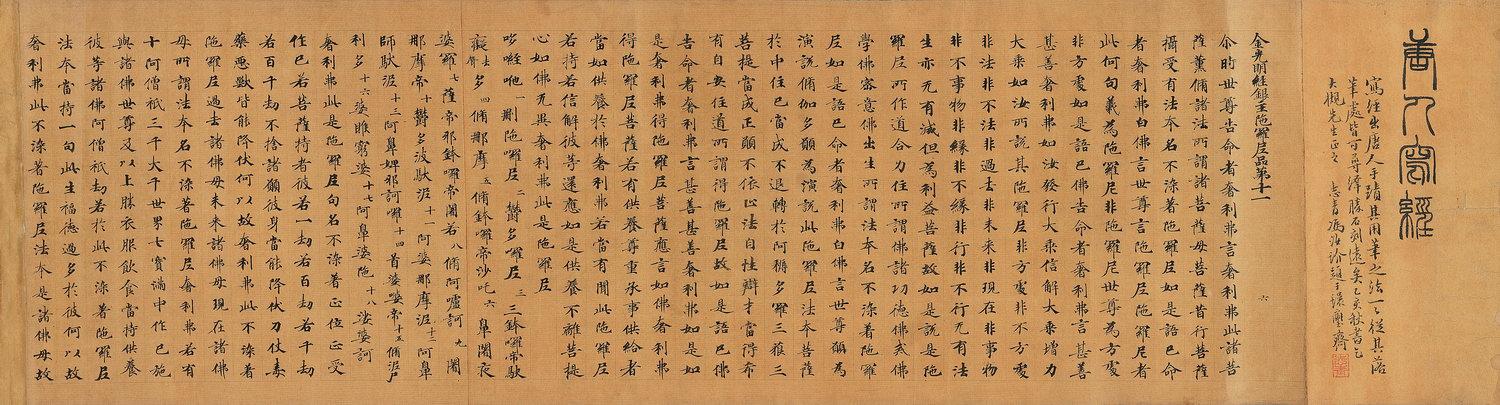 唐人寫經
寫經出唐人手蹟其用筆之法一一從其落
筆處皆可尋繹勝石刻遠矣乙亥秋書乞
大概先生正之
金光明經銀主陁羅尼品第十一
尒時世尊告命者奢利弗言奢利弗此諸菩
薩薰俻諸法所謂諸菩薩母菩薩昔行菩薩
攝受有法本名不涤著陁羅尼如是語已命
者奢利弗白佛言世尊言陁羅尼陁羅尼者
此何句義為陁羅尼非陁羅尼世尊為方處
非方處如是語已佛告命者奢利弗言甚善
甚善奢利弗如汝發行大乘信解大乘增力
大乘如汝所說其陁羅尼非方處非不方處
非法非不法非過去非未来非現在非事物
非不事物非緣非不緣非行非不行无有法
生亦无有滅但為利益菩薩故如是說是陁
羅尼所作道合力住所謂佛諸功德佛戒佛
學佛審意佛出生所謂法本名不涤著陁羅
尼如是語已命者奢利弗白佛言世尊願為
演說俻伽多願為演說此陁羅尼法本菩薩
於中住已當成不退轉於阿耨多羅三藐三
菩提當成正願不依止法自性辯才當得希
有自安住道所謂得陁羅尼故如是語已佛
告命者奢利弗言甚善甚善奢利弗如是如
是奢利弗得陁羅尼菩薩應言如佛奢利弗
得陁羅尼者所有供養尊重承事供給者
當如供養於佛奢利弗若當有聞此陁羅尼
若持若信解彼等還應如是供養不離菩提
心如佛无異奢利弗此是陁羅尼
哆姪他一 刪陁囉尼二 欝多囉尼三 三鉢囉帝馱
癡 多四 俻那摩五 俻鉢囉帝沙吒六 皐闍夜
婆囉七 薩帝邪鉢囉帝闍若八 俻阿嚧訶九 闍
那摩帝十 欝多波馱泥十一 阿婆那摩泥十二 阿皐
師馱泥十三 阿皐婢邪訶囉十四 首婆婆帝十五 俻泥尸
利多十六 婆睢窮婆十七 阿皐婆陁十八 娑婆訶
奢利弗此是陁羅尼句名不涤著正位正受
作已若菩薩持者彼若一劫若百劫若千劫
若百千劫不捨諸願彼身當能降伏刀仗毒
藥惡獸皆能降伏何以故奢利弗此不涤著
陁羅尼過去諸佛母未来諸佛母現在諸佛
母所謂法本名不涤著陁羅尼奢利弗若有
十阿僧祇三千大千世界七寶滿中作已施
與諸佛世尊及以上勝衣服飲食當持供養
彼等諸佛阿僧祇劫若於此不涤著陁羅尼
法本當持一句此生福德過多於彼何以故
奢利弗此不涤著陁羅尼法本是諸佛母故